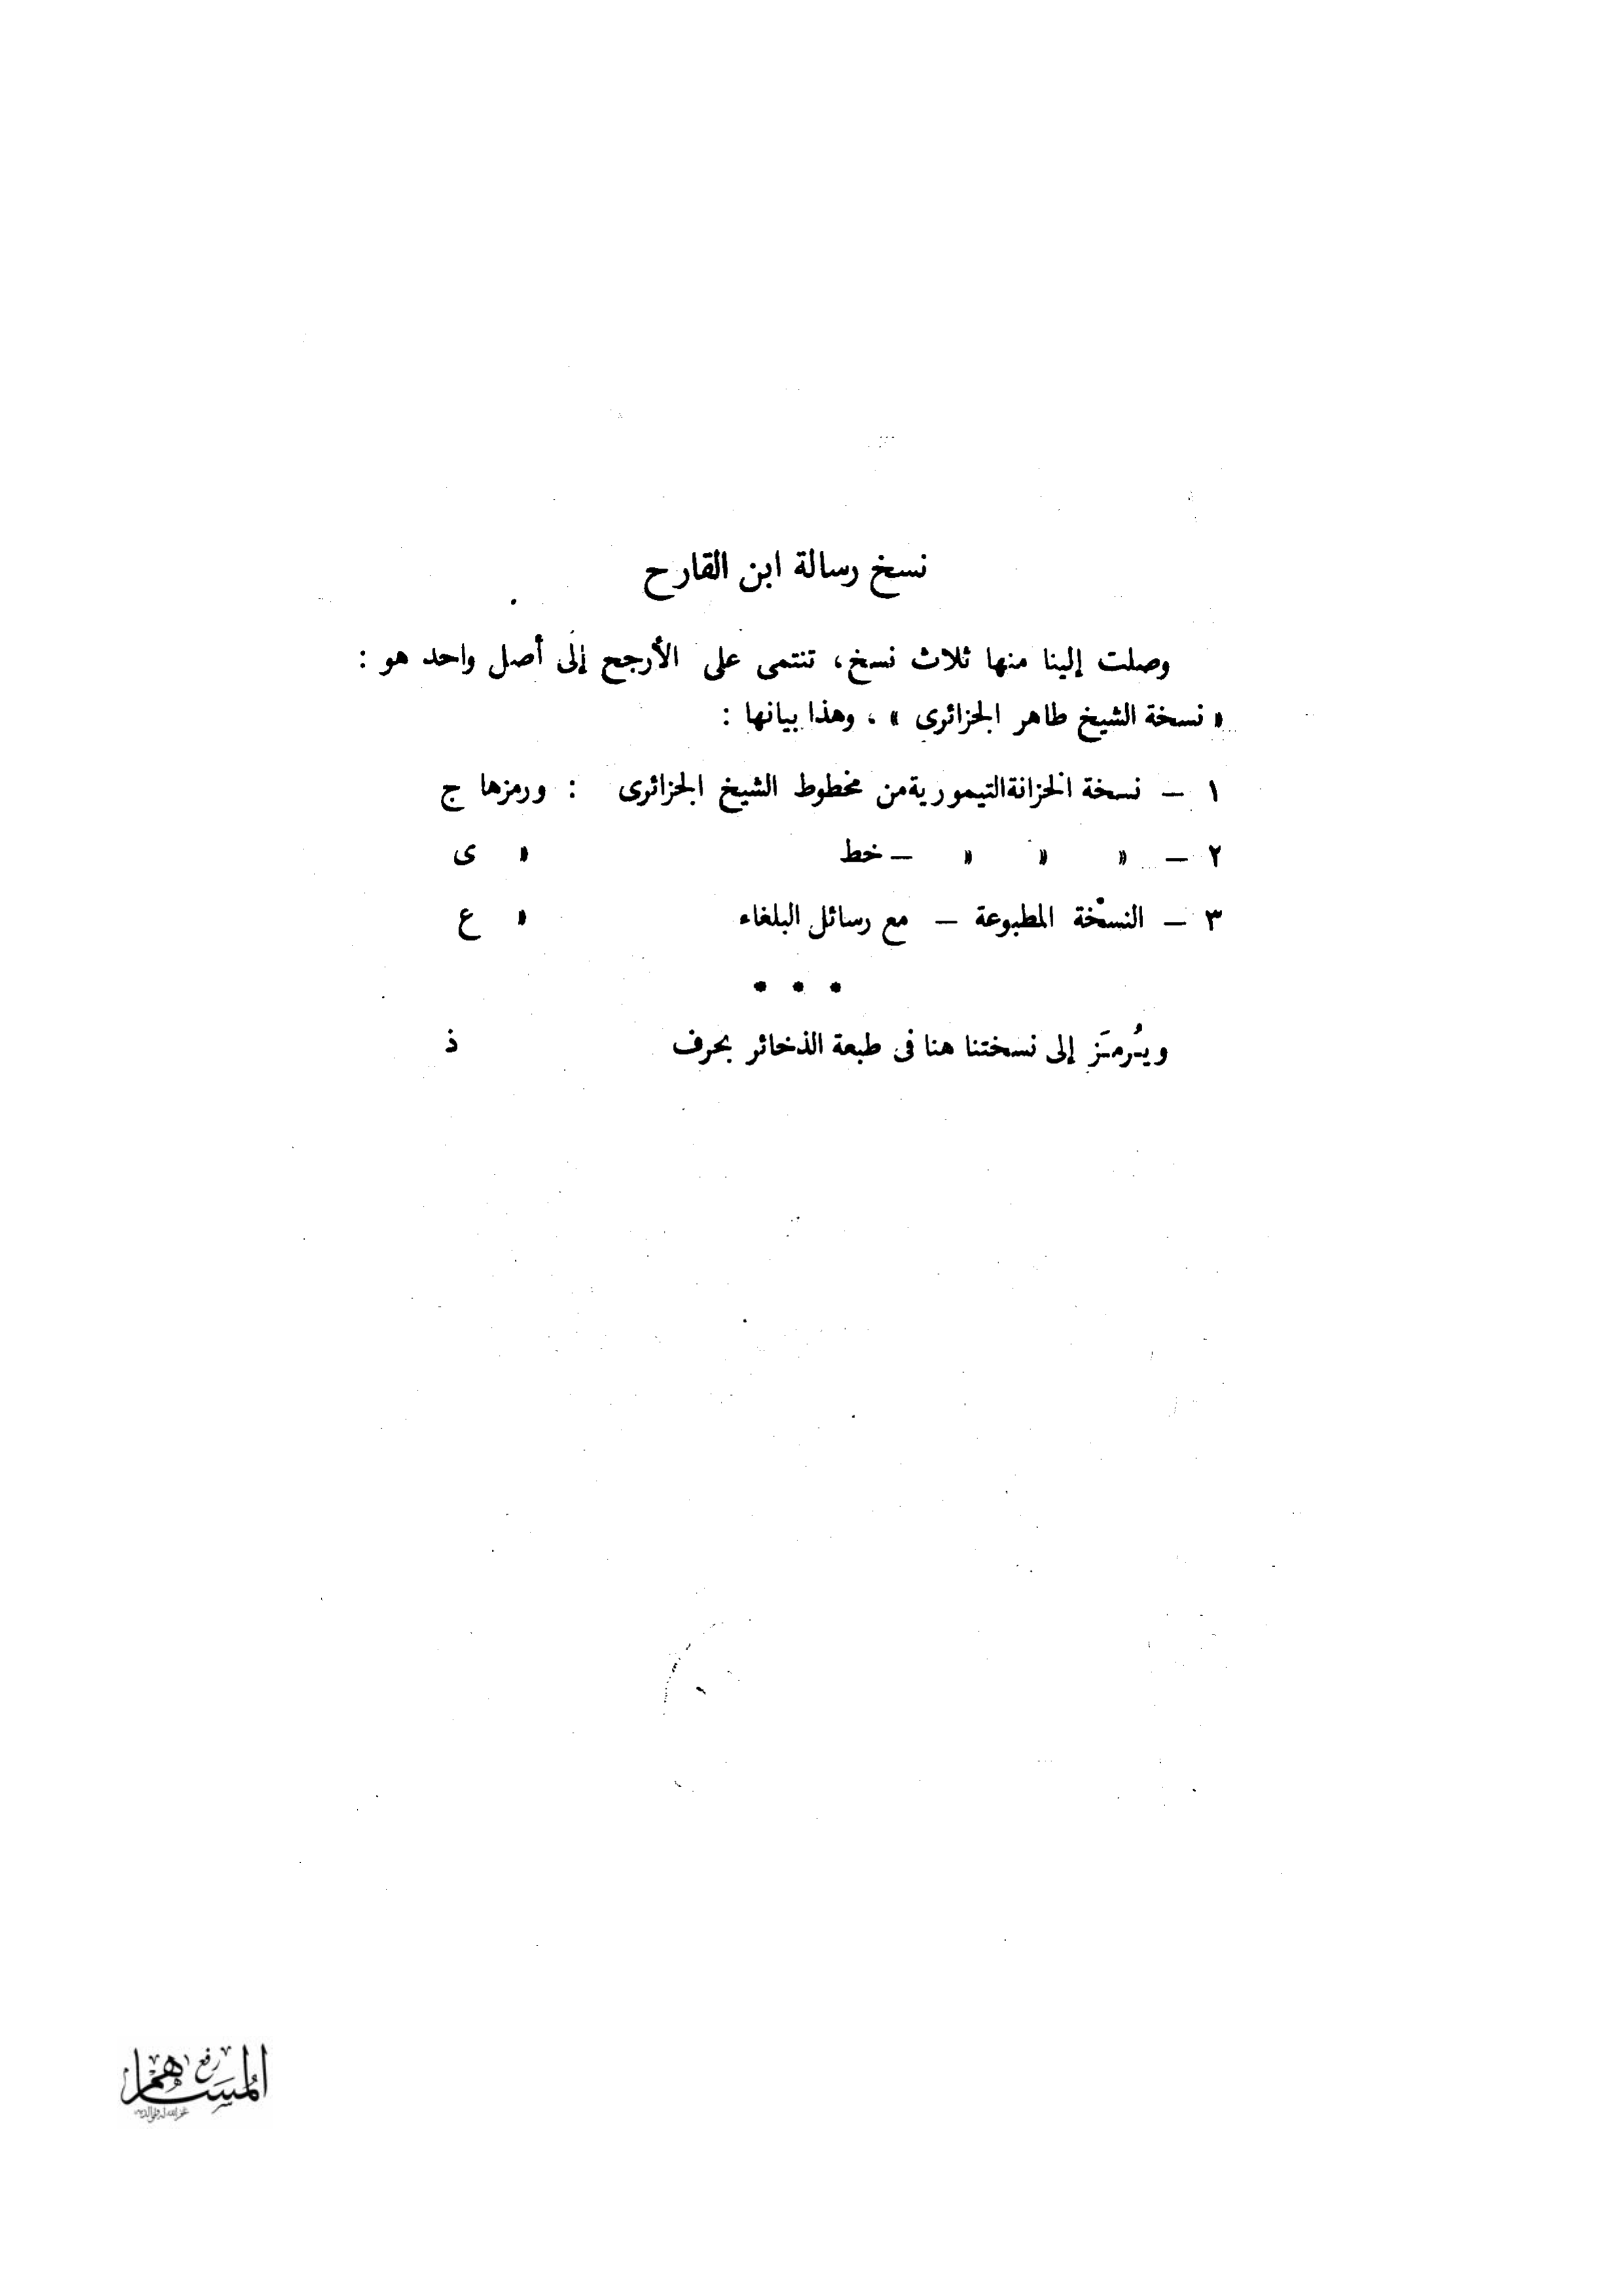 نسخ رسالة ابن القارح
وصلت إلينا منها ثلاث نسخ، تنتمى على الأرجح إلى أصل واحد هو :
« نسخة الشيخ طاهر الجزائرى » ، وهذا بيانها :
١ – نسخة الخزانة التيمورية من مخطوط الشيخ الجزائرى : ورمزها ج
٢ – » » » – خط » ى
٣ – النسخة المطبوعة – مع رسائل البلغاء » ع
• • •
ويُرمَز إلى نسختنا هنا فى طبعة الذخائر بحرف ذ
رفع
المساهم